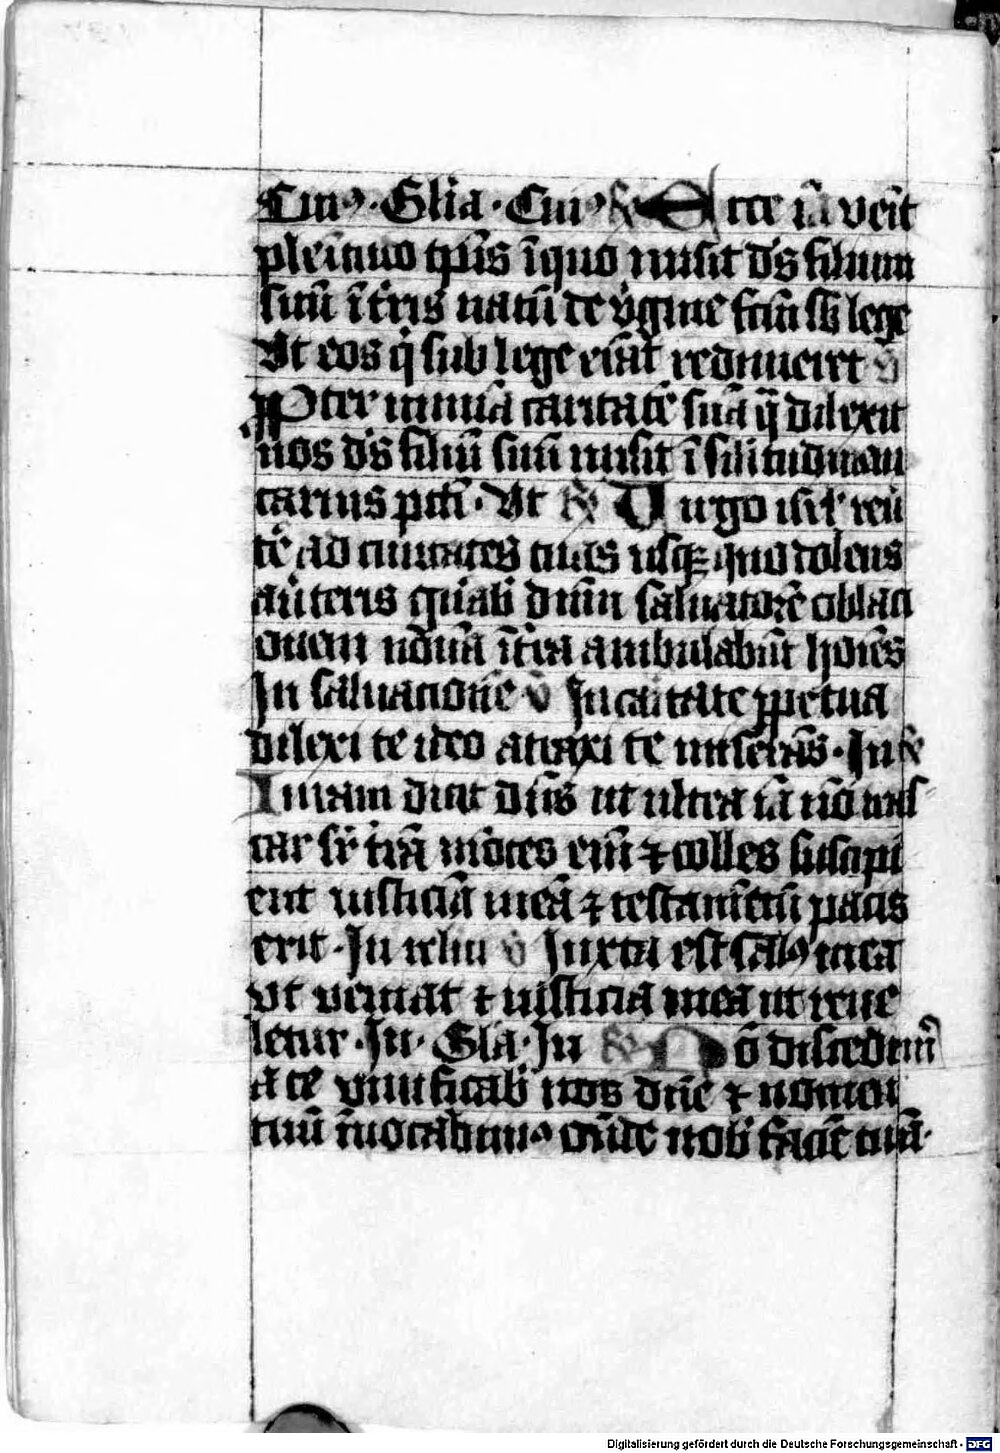 Cui⁹ · Glia · Cui⁹ R Ecce iā veīt
pleītuo tp̄is ī quo misit d̄s filium
suū ī t̄ris natū de v̊gine fc̄m sb̄ lege
Vt eos q̄ sub lege er̄at redimeret v̄
ꝓpter nimiā caritatē suā q̄ dilexit
nos d̄s filiū suū misit ī silitudinem
carnis pcti · Vt R Virgo isrl̄ reū
tē ad ciuitates tuas usqꝫ quo dolens
auteris gn̄ab dnm̄ saluatorē oblaci
onem nouā ī t̄ra ambulabūt hoīes
In saluacione v̄ In caritate ꝑpetua
dilexi te ideo attraxi te miserās · In R
Iuraui dicit dn̄s ut ultra iā nō iras
car sr̄ t̄rā mōtes em̄ ⁊ colles suscipi
ent iusticiā meā ⁊ testamentū pacis
erit · In irlm̄ v̄ Iuxta est sal⁹ mea
vt veniat ⁊ iusticia mea ut reue
letur · In · Glia · In R Nō discedim⁹
a te viuificab nos dn̄e ⁊ nomen
tuū īuocabim⁹ on̄de nob faciē tuā ·
Digitalisierung gefördert durch die Deutsche Forschungsgemeinschaft - DFG